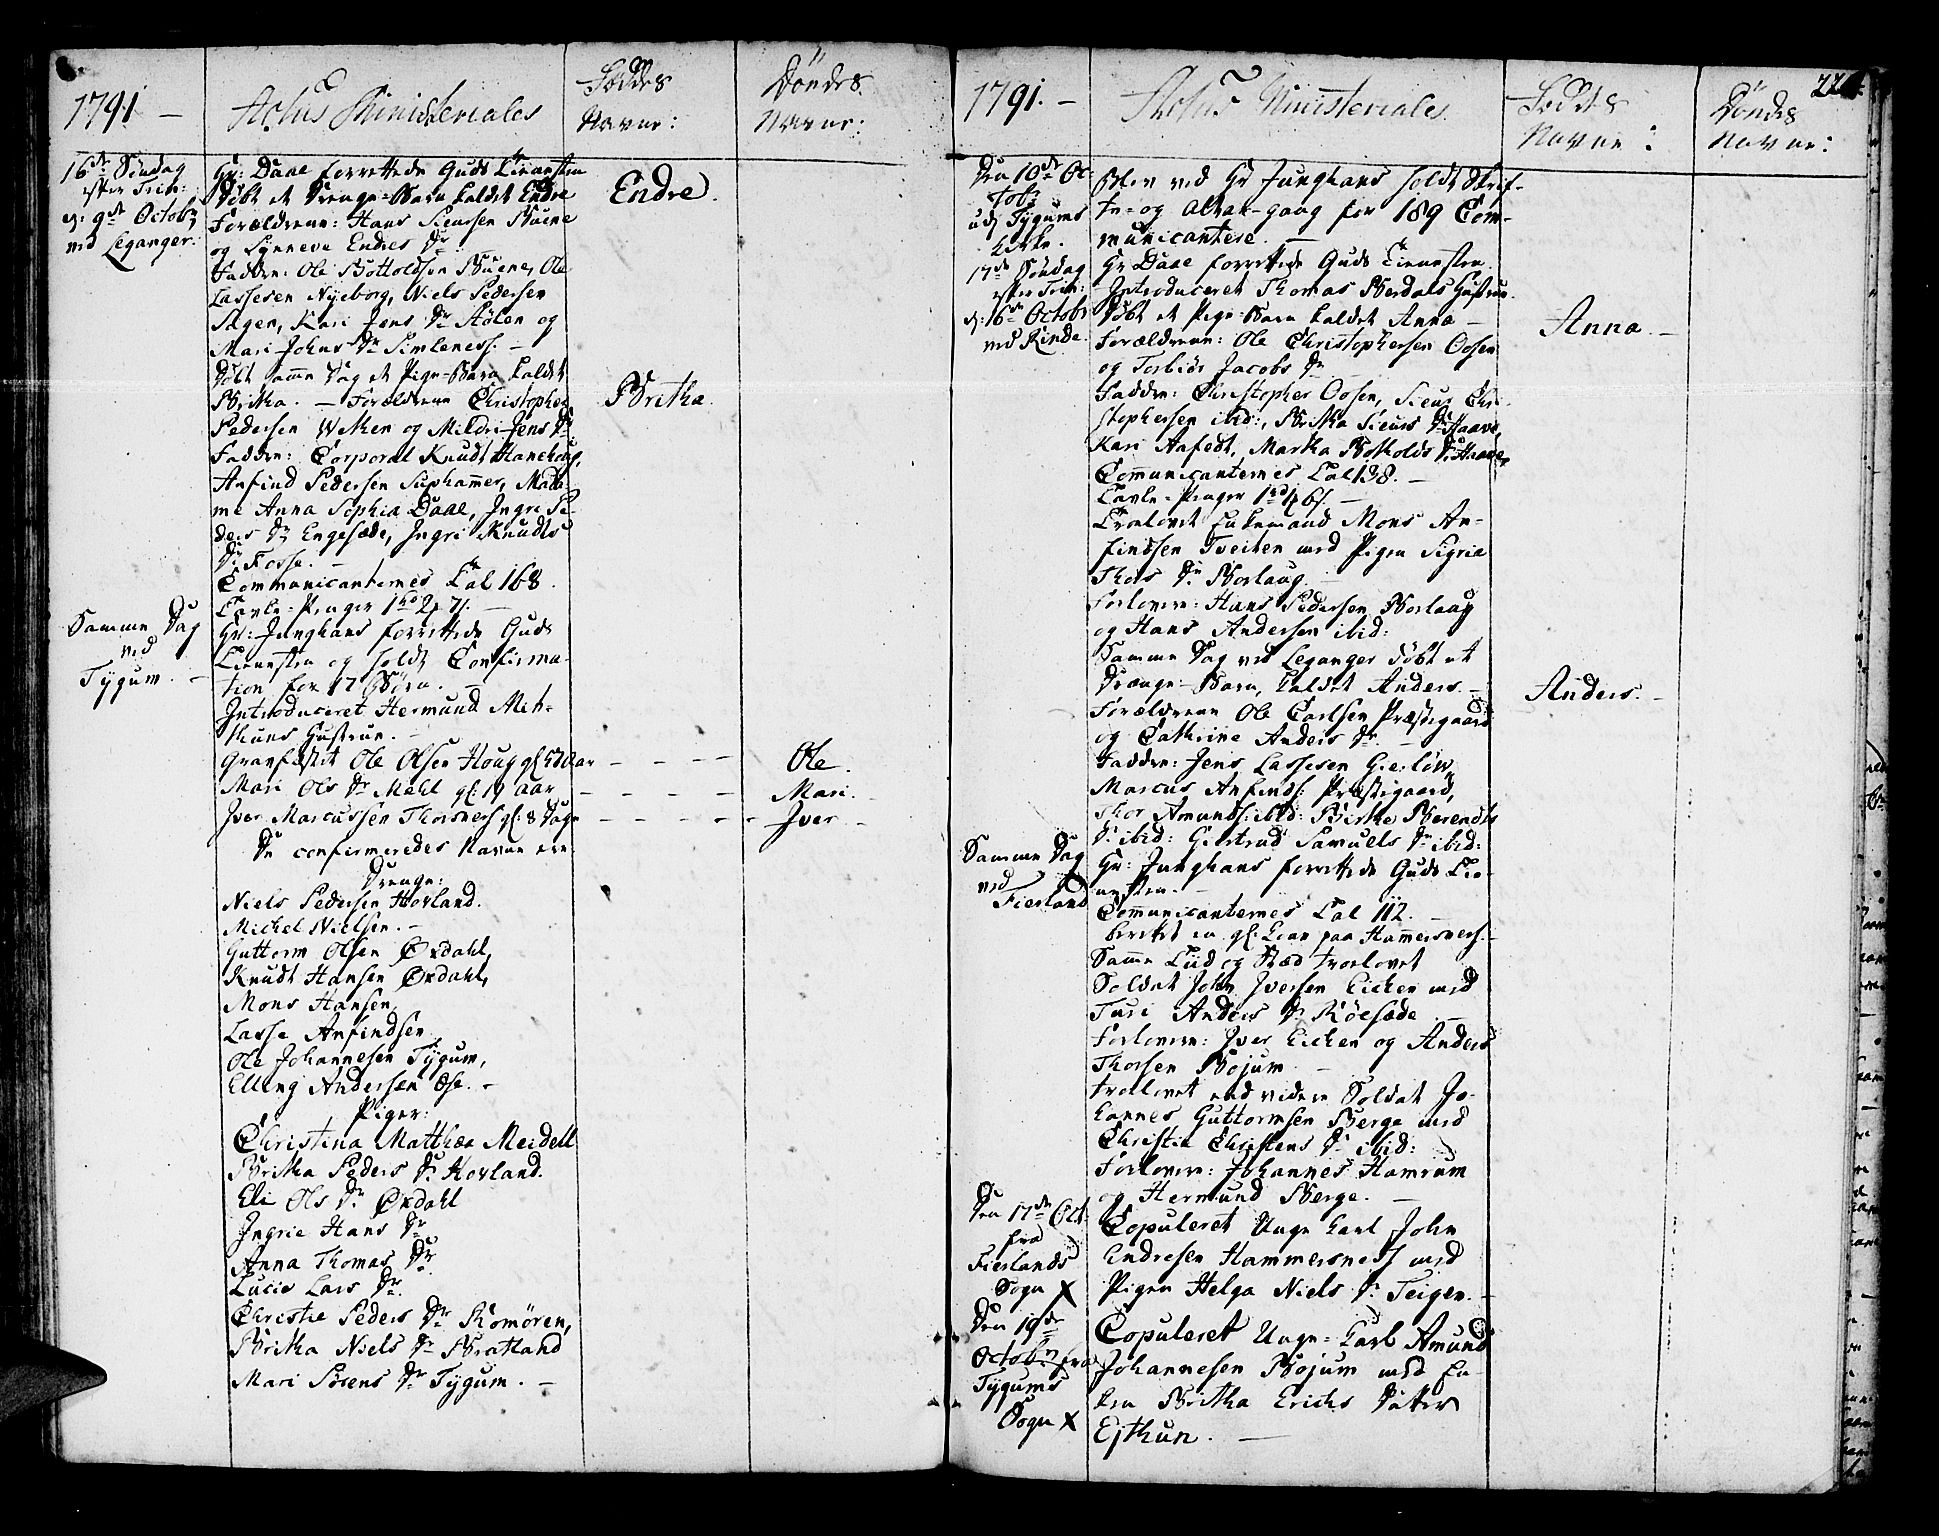 1791 —
Actus Ministeriales
Föddes
Navne:
Döndes
Navne:
16de Söndag
efter Trin:
d: 9de Octobr
ved Leganger.
Hr: Daae forrettede Guds Tienesten
Döbt et Drenge-Barn kaldet Endre
Forældrene: Hans Siursen Buene
og Synneve Endres Dr
Faddere: Ole Bottoldsen Buene, Ole
Lassesen Nyeborg, Niels Pedersen
Sagen, Kari Jens Dr Hölen og
Mari Johns Dr Simleness. —
Döbt samme Dag et Pige-Barn kaldet
Britha. — Forældrene Christopher
Pedersen Weken og Mildri Jens Dr
Faddere: Corporal Knudt Hanehoug,
Anfind Pedersen Suphamer, Mada-
me Anna Sophia Daae, Ingri Pe-
ders Dr Engesæde, Ingri Knudts
Dr Fosse. —
Communicanternes Tal 168.
Tavle-Penger 1rd 2 7s. —
Endre.
Britha.
Samme Dag
ved
Tygum. —
Hr: Junghans forrettede Guds
Tienesten og holdt Confirma-
tion for 17 Börn. —
Introduceret Hermund Meh-
thuns Hustrue. —
Gravfæstet Ole Olsen Houg gl: 57 Aar
Ole.
Mari Ols Dr Mehl gl: 19 aar
Mari.
Iver Marcussen Thorsnes gl: 8 Dage
Iver —
De confirmeredes Navne ere
Drenge:
Niels Pedersen Hovland.
Michel Nielsen. —
Guttorm Olsen Öxdahl,
Knudt Hansen Öxdahl,
Mons Hansen,
Lasse Anfindsen
Ole Johannesen Tygum,
Elling Andersen Ese. —
Piger:
Christina Matthæa Meidell
Britha Peders Dr Hovland.
Eli Ols Dr Öxdahl
Ingrie Hans Dr
Anna Thomas Dr
Lucie Lars Dr
Christie Peders Dr Romören,
Britha Niels Dr Bratland
Mari Sörens Dr Tygum. —
1791. —
Actus Ministeriales.
Föddes
Navne:
Döndes
Navne:
Den 10de Oc-
tobr
udj Tygums
Kirke.
Blev ved Hr Junghans holdt Skrif-
te- og Altar-gang for 189 Com-
municantere. —
17de Söndag
efter Trin:
d: 16de Octobr
ved Rinde.
Hr Daae forrettede Guds Tienesten
Introduceret Thomas Berdals Hustrue.
Döbt et Pige-Barn kaldet Anna —
Forældrene: Ole Christophersen Oosen
og Torbiör Jacobs Dr
Faddere: Christopher Oosen, Siur Chri-
stophersen ibid:, Britha Siurs Dr Haave,
Kari Aafedt, Martha Botholds Dr Haave,
Communicanternes Tal 138. —
Tavle-Penger 1rd 6s. —
Troelovet Enkemand Mons An-
findsen Tveiten med Pigen Sigrie
Thors Dr Borlaug. —
Forlovere: Hans Pedersen Borlaug
og Hans Andersen ibid:
Anna. —
Samme Dag ved Leganger döbt et
Drænge-Barn, kaldet Anders. —
Forældrene Ole Carlsen Præstegaard
og Cathrine Anders Dr. —
Faddere: Jens Lassesen Gierlöw,
Marcus Anfinds: Præstegaard,
Thor Amunds: ibid: Birthe Berendts
Dr ibid: Giertrud Samuels Dr ibid:
Anders. —
Samme Dag
ved
Fierland
Hr: Junghans forrettede Guds Tie-
nesten. —
Communicanternes Tal 112. —
berettet en gl: Kone paa Hammersness. —
Samme Tiid og Stæd troelovet
Soldat John Iversen Eichen med
Turi Anders Dr Röesæde —
Forlovere: Iver Eichen og Anders
Thorsen Bojum —
troelovet end videre Soldat Jo-
hannes Guttormsen Berge med
Christie Christens Dr ibid:
Forlovere: Johannes Hamrum
og Hermund Berge. —
Den 17de Oct.
fra
Fierlands
Sogn X
Copuleret Unge Karl John
Endresen Hammersness med
Pigen Helga Niels Dr Teigen. —
Den 19de
Octobr fra
Tygums
Sogn X
Copuleret Unge-Karl Amund
Johannesen Bojum med En-
ken Britha Erichs Datter
Ejthun. —